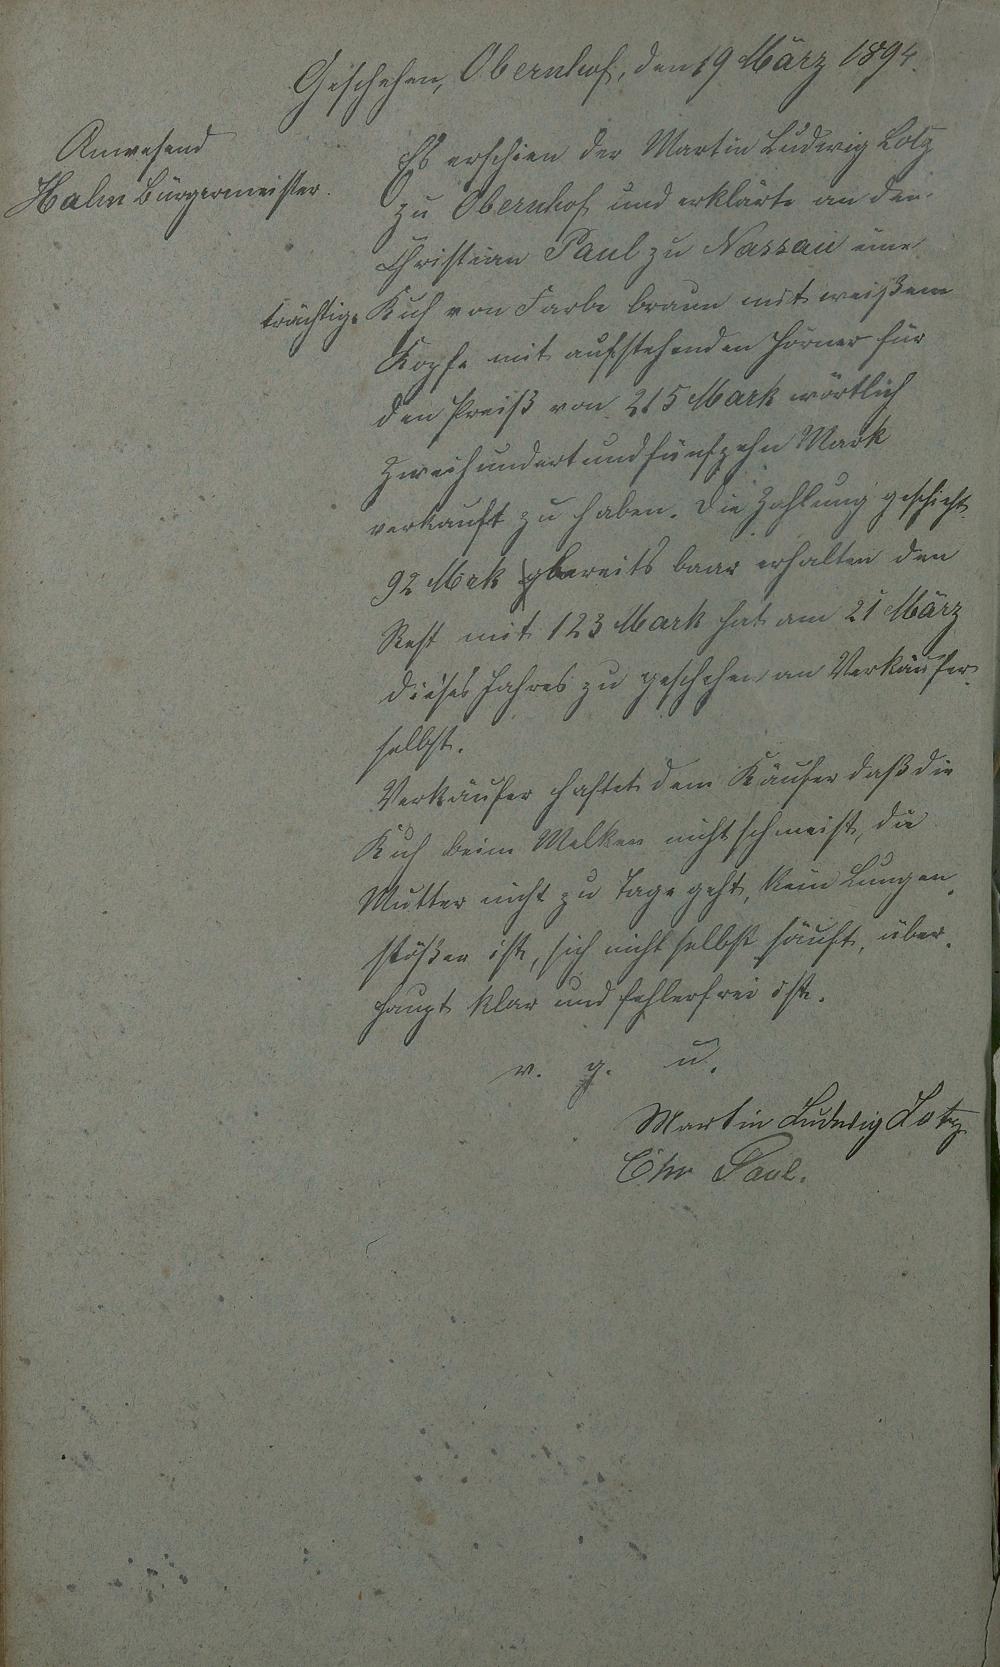 Geschehen, Obernhof, den 19 März 1894.
Anwesend
Halm Bürgermeister.
Es erschien der Martin Ludwig Lotz
zu Obernhof und erklärte an den
Christian Paul zu Nassau eine
trächtige Kuh von Farbe braun mit weißem
Kopfe mit aufstehenden Hörner für
den Preiß von 215 Mark wörtlich
Zweihundertundfünfzehn Mark
verkauft zu haben. Die Zahlung geschieht
92 Mrk bereits baar erhalten den
Rest mit 123 Mark hat am 21 März
dieses Jahres zu geschehen an Verkäufer
selbst.
Verkäufer haftet dem Käufer daß die
Kuh beim Melken nicht schmeist, die
Mutter nicht zu Tage geht, kein Lungen
stößer ist, sich nicht selbst säuft, über
haupt klar und fehlerfrei ist.
v. g. u.
Martin Ludwig Lotz
Chr Paul.